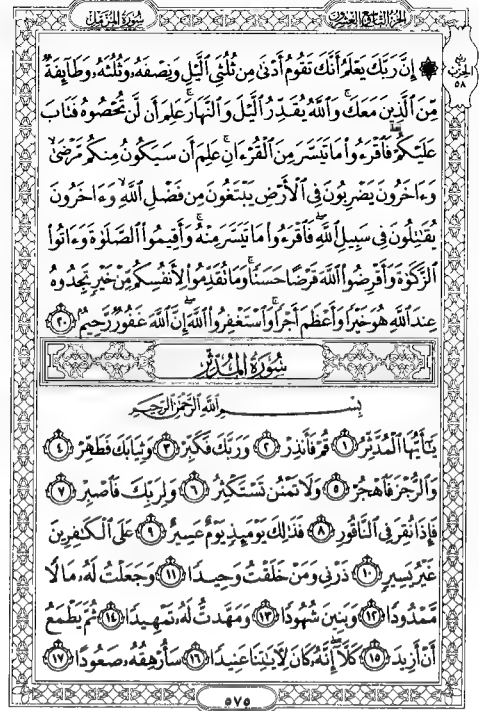 سُورَةُ المُزَّمِّلِ
الجُزْءُ التَّاسِعُ وَالعِشْرُونَ
رُبْعُ
الحِزْبِ
٥٨
۞ إِنَّ رَبَّكَ يَعْلَمُ أَنَّكَ تَقُومُ أَدْنَىٰ مِن ثُلُثَيِ ٱلَّيْلِ وَنِصْفَهُۥ وَثُلُثَهُۥ وَطَآئِفَةٌ
مِّنَ ٱلَّذِينَ مَعَكَۚ وَٱللَّهُ يُقَدِّرُ ٱلَّيْلَ وَٱلنَّهَارَۚ عَلِمَ أَن لَّن تُحْصُوهُ فَتَابَ
عَلَيْكُمْۖ فَٱقْرَءُوا۟ مَا تَيَسَّرَ مِنَ ٱلْقُرْءَانِۚ عَلِمَ أَن سَيَكُونُ مِنكُم مَّرْضَىٰۙ
وَءَاخَرُونَ يَضْرِبُونَ فِى ٱلْأَرْضِ يَبْتَغُونَ مِن فَضْلِ ٱللَّهِۙ وَءَاخَرُونَ
يُقَٰتِلُونَ فِى سَبِيلِ ٱللَّهِۖ فَٱقْرَءُوا۟ مَا تَيَسَّرَ مِنْهُۚ وَأَقِيمُوا۟ ٱلصَّلَوٰةَ وَءَاتُوا۟
ٱلزَّكَوٰةَ وَأَقْرِضُوا۟ ٱللَّهَ قَرْضًا حَسَنًاۚ وَمَا تُقَدِّمُوا۟ لِأَنفُسِكُم مِّنْ خَيْرٍ تَجِدُوهُ
عِندَ ٱللَّهِ هُوَ خَيْرًا وَأَعْظَمَ أَجْرًاۚ وَٱسْتَغْفِرُوا۟ ٱللَّهَۖ إِنَّ ٱللَّهَ غَفُورٌ رَّحِيمٌۢ ٢٠
سُورَةُ المُدَّثِّرِ
بِسْمِ ٱللَّهِ ٱلرَّحْمَٰنِ ٱلرَّحِيمِ
يَٰٓأَيُّهَا ٱلْمُدَّثِّرُ ١ قُمْ فَأَنذِرْ ٢ وَرَبَّكَ فَكَبِّرْ ٣ وَثِيَابَكَ فَطَهِّرْ ٤
وَٱلرُّجْزَ فَٱهْجُرْ ٥ وَلَا تَمْنُن تَسْتَكْثِرُ ٦ وَلِرَبِّكَ فَٱصْبِرْ ٧
فَإِذَا نُقِرَ فِى ٱلنَّاقُورِ ٨ فَذَٰلِكَ يَوْمَئِذٍ يَوْمٌ عَسِيرٌ ٩ عَلَى ٱلْكَٰفِرِينَ
غَيْرُ يَسِيرٍ ١٠ ذَرْنِى وَمَنْ خَلَقْتُ وَحِيدًا ١١ وَجَعَلْتُ لَهُۥ مَالًا
مَّمْدُودًا ١٢ وَبَنِينَ شُهُودًا ١٣ وَمَهَّدتُّ لَهُۥ تَمْهِيدًا ١٤ ثُمَّ يَطْمَعُ
أَنْ أَزِيدَ ١٥ كَلَّآۖ إِنَّهُۥ كَانَ لِءَايَٰتِنَا عَنِيدًا ١٦ سَأُرْهِقُهُۥ صَعُودًا ١٧
٥٧٥